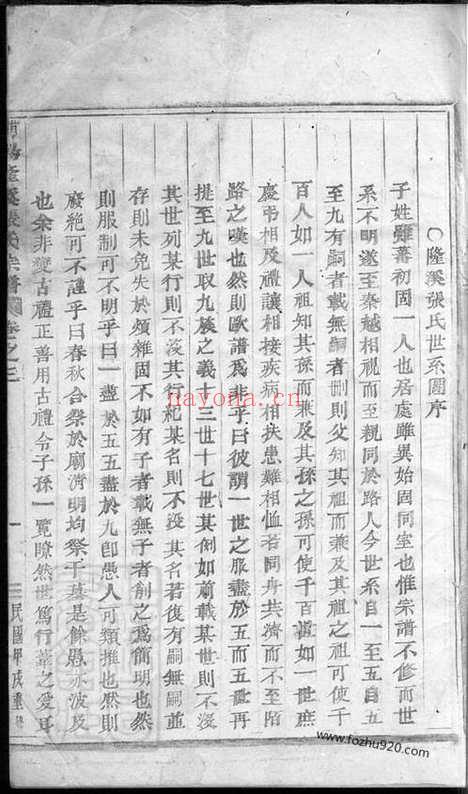 ○隆溪張氏世系圖序
子姓雖蕃初固一人也居處雖異始固同室也惟宗譜不修而世
系不明遂至秦越相視而至親同於路人今世系自一至五自五
至九有嗣者載無嗣者刪則父知其祖而兼及其祖之祖可使千
百人如一人祖知其孫而兼及其孫之孫可使千百世如一世庶
慶弔相及禮讓相接疾病相扶患難相恤若同舟共濟而不至陌
路之嘆也然則歐譜爲非乎曰彼謂一世之服盡於五而五世再
提至九世取九族之義十三世十七世某倒如前載某世則不沒
其世列某行則不沒其行紀某名則不沒其名若復有嗣無嗣並
存則未免失於頪雜固不如有子者載無子者削之爲簡明也然
則服制可不明乎曰一盡於五五盡於九卽愚人可類推也然則
廢絶可不謹乎曰春秋合祭於廟淸明均祭于墓是餘恩亦波及
也余非變古禮正善用古禮令子孫一覽瞭然世篤行葦之愛耳
隆溪張氏宗譜 卷之
一
民國甲戌重修
nayona.cn
www.fozhu920.com